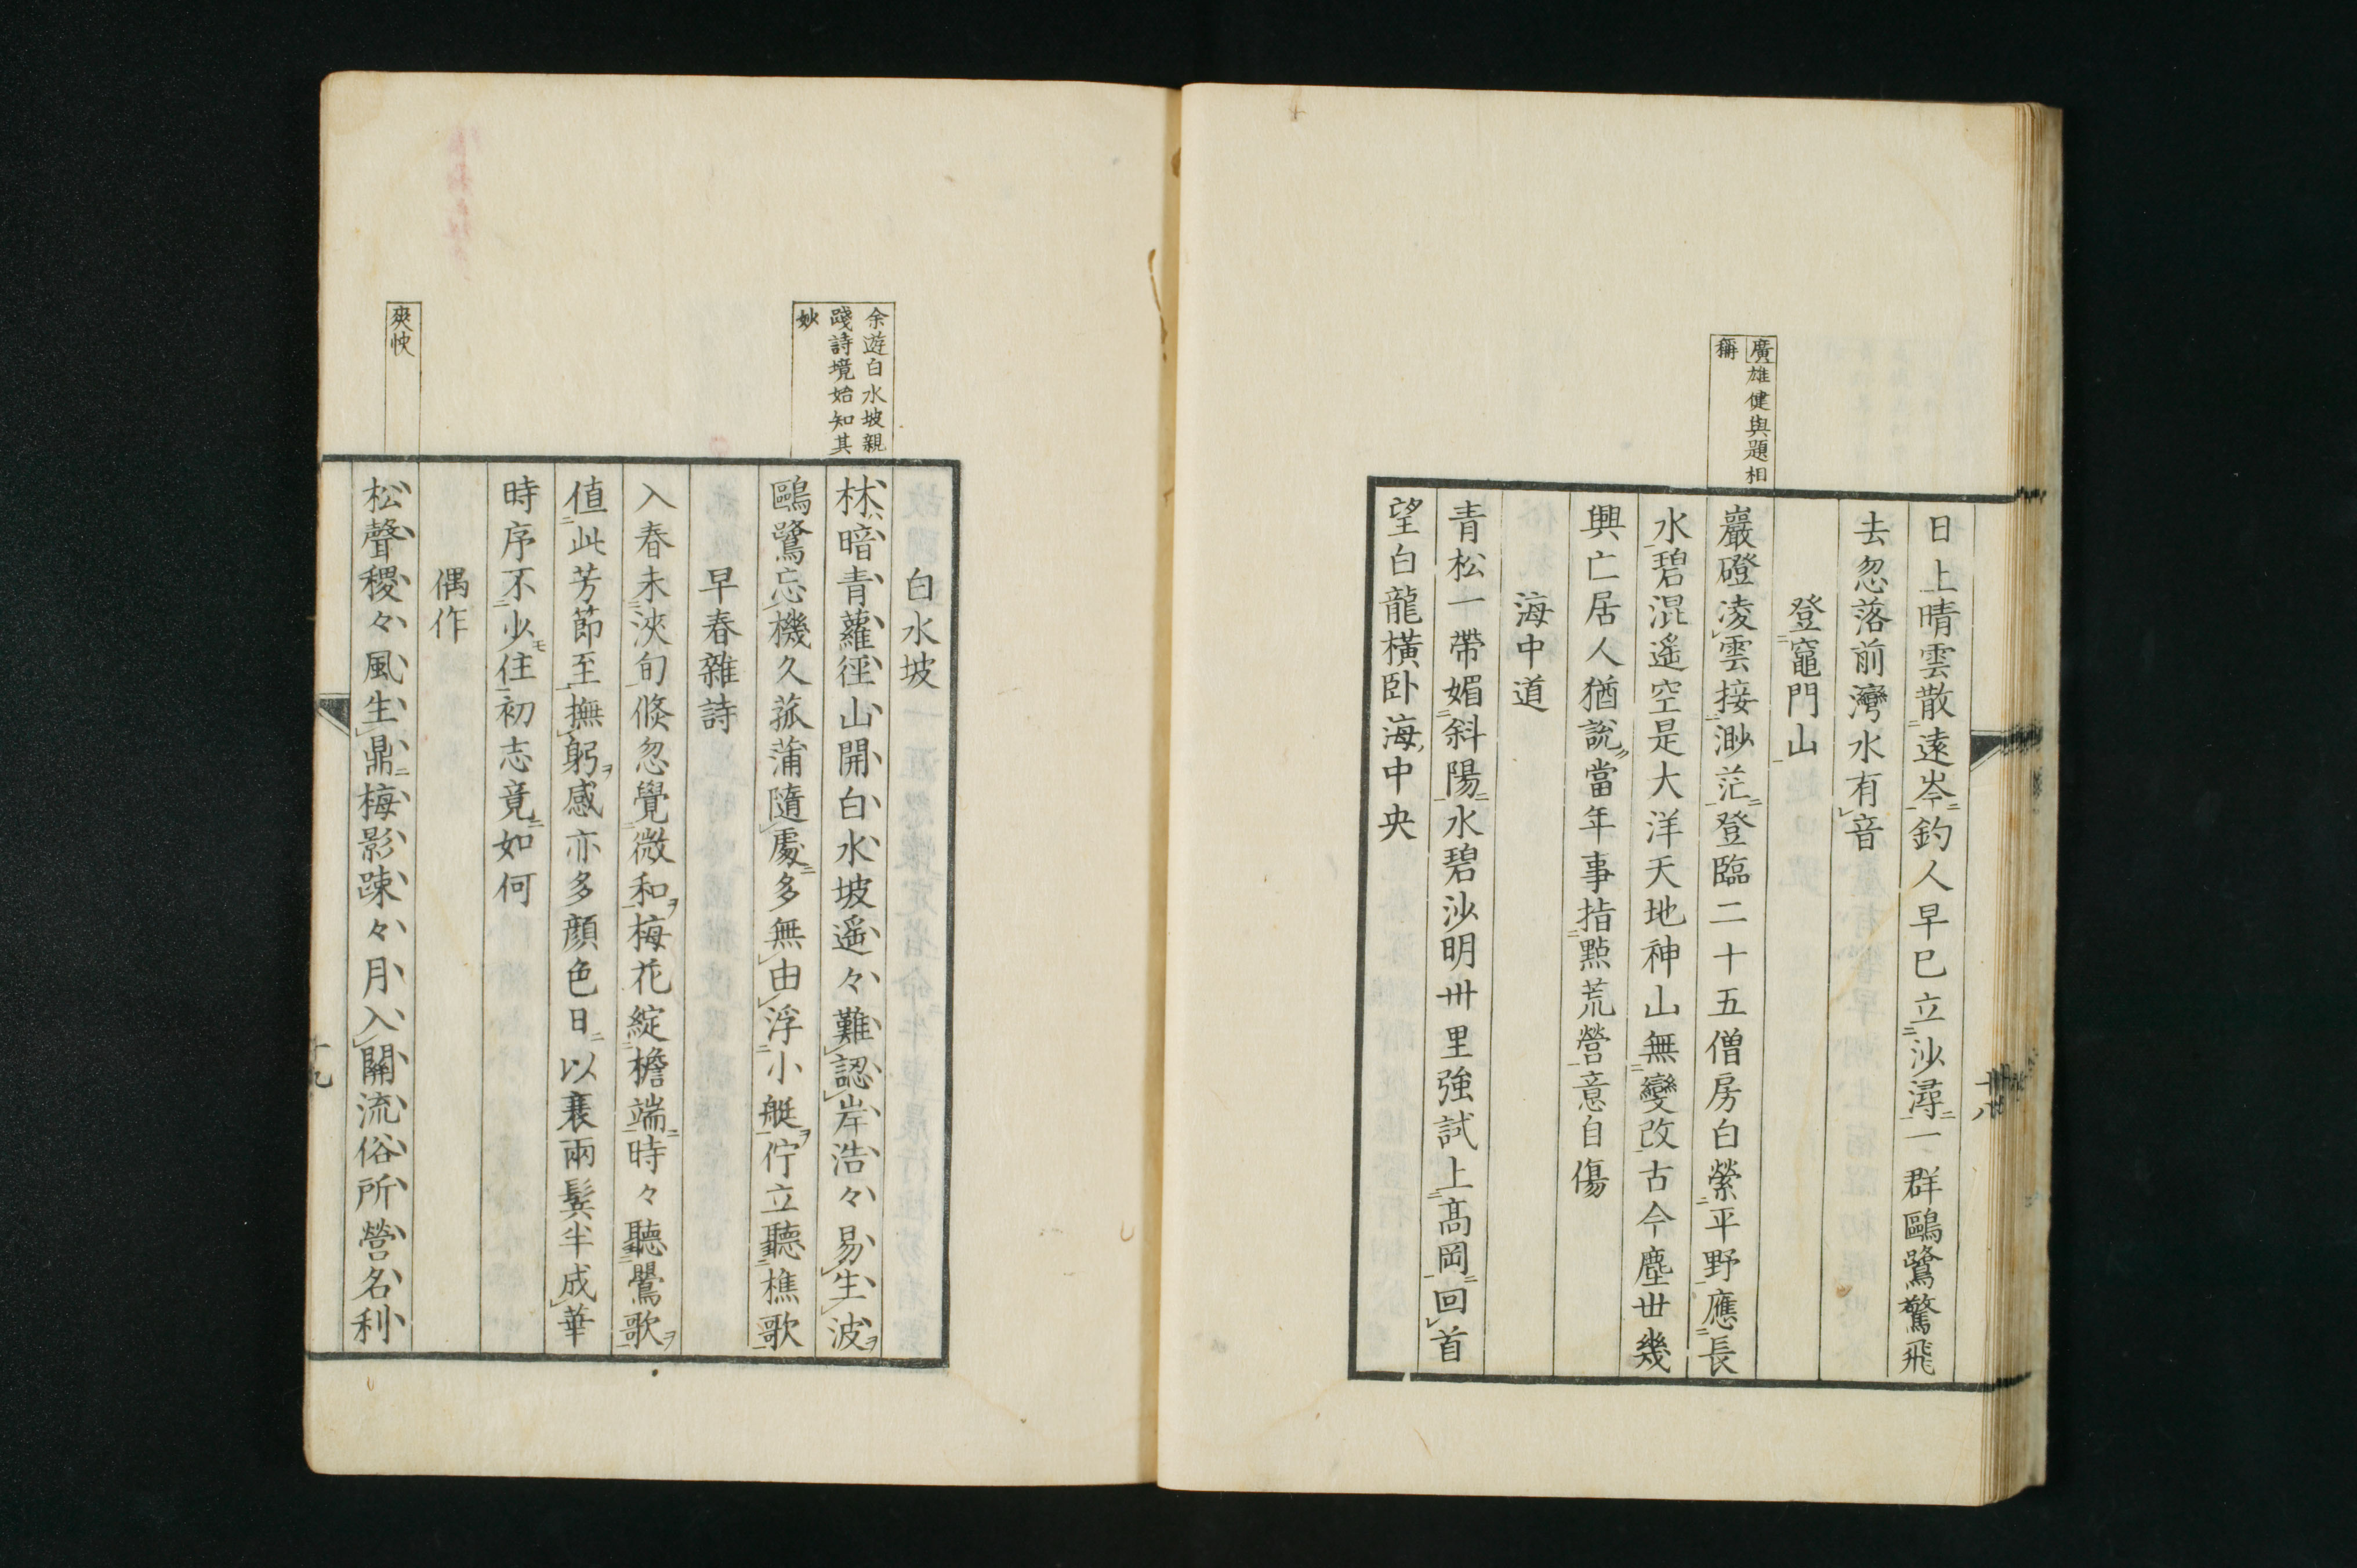 廣雄健與題相
稱
日上晴雲散遠岑釣人早已立沙潯一群鷗鷺驚飛
去忽落前灣水有音
登竈門山
巖磴凌雲接渺茫登臨二十五僧房白縈平野應長
水碧混遙空是大洋天地神山無變改古今塵世幾
興亡居人猶說當年事指點荒營意自傷
海中道
青松一帶媚斜陽水碧沙明卅里強試上高岡回首
望白龍橫卧海中央
十八
余遊白水坡親
踐詩境始知其
妙
白水坡
林暗青蘿徑山開白水坡遙々難認岸浩々易生波
鷗鷺忘機久菰蒲隨處多無由浮小艇佇立聽樵歌
早春雜詩
入春未浹旬倐忽覺微和梅花綻檐端時々聽鶯歌
值此芳節至撫躬感亦多顏色日以衰兩鬂半成華
時序不少住初志竟如何
偶作
爽快
松聲稷々風生鼎梅影踈々月入關流俗所營名利
十九